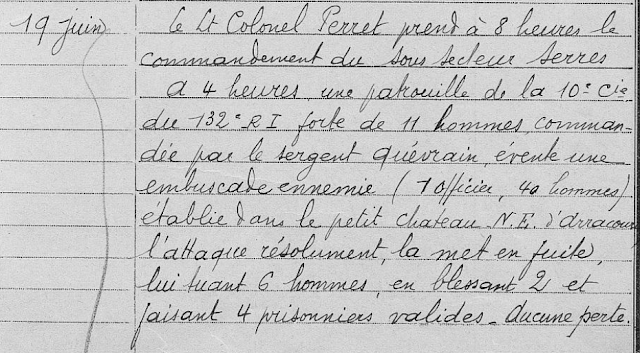 19 juin Le Lt Colonel Perret prend à 8 heures le
commandement du sous secteur Serres
A 4 heures une patrouille de la 10e Cie
du 132e RI forte de 11 hommes, comman-
dée par le sergent Quévrain, évente une
embuscade ennemie (1 officier, 40 hommes)
établie dans le petit chateau N.E. d'Arracourt
l'attaque résolument, la met en fuite,
lui tuant 6 hommes, en blessant 2 et
faisant 4 prisonniers valides - Aucune perte.